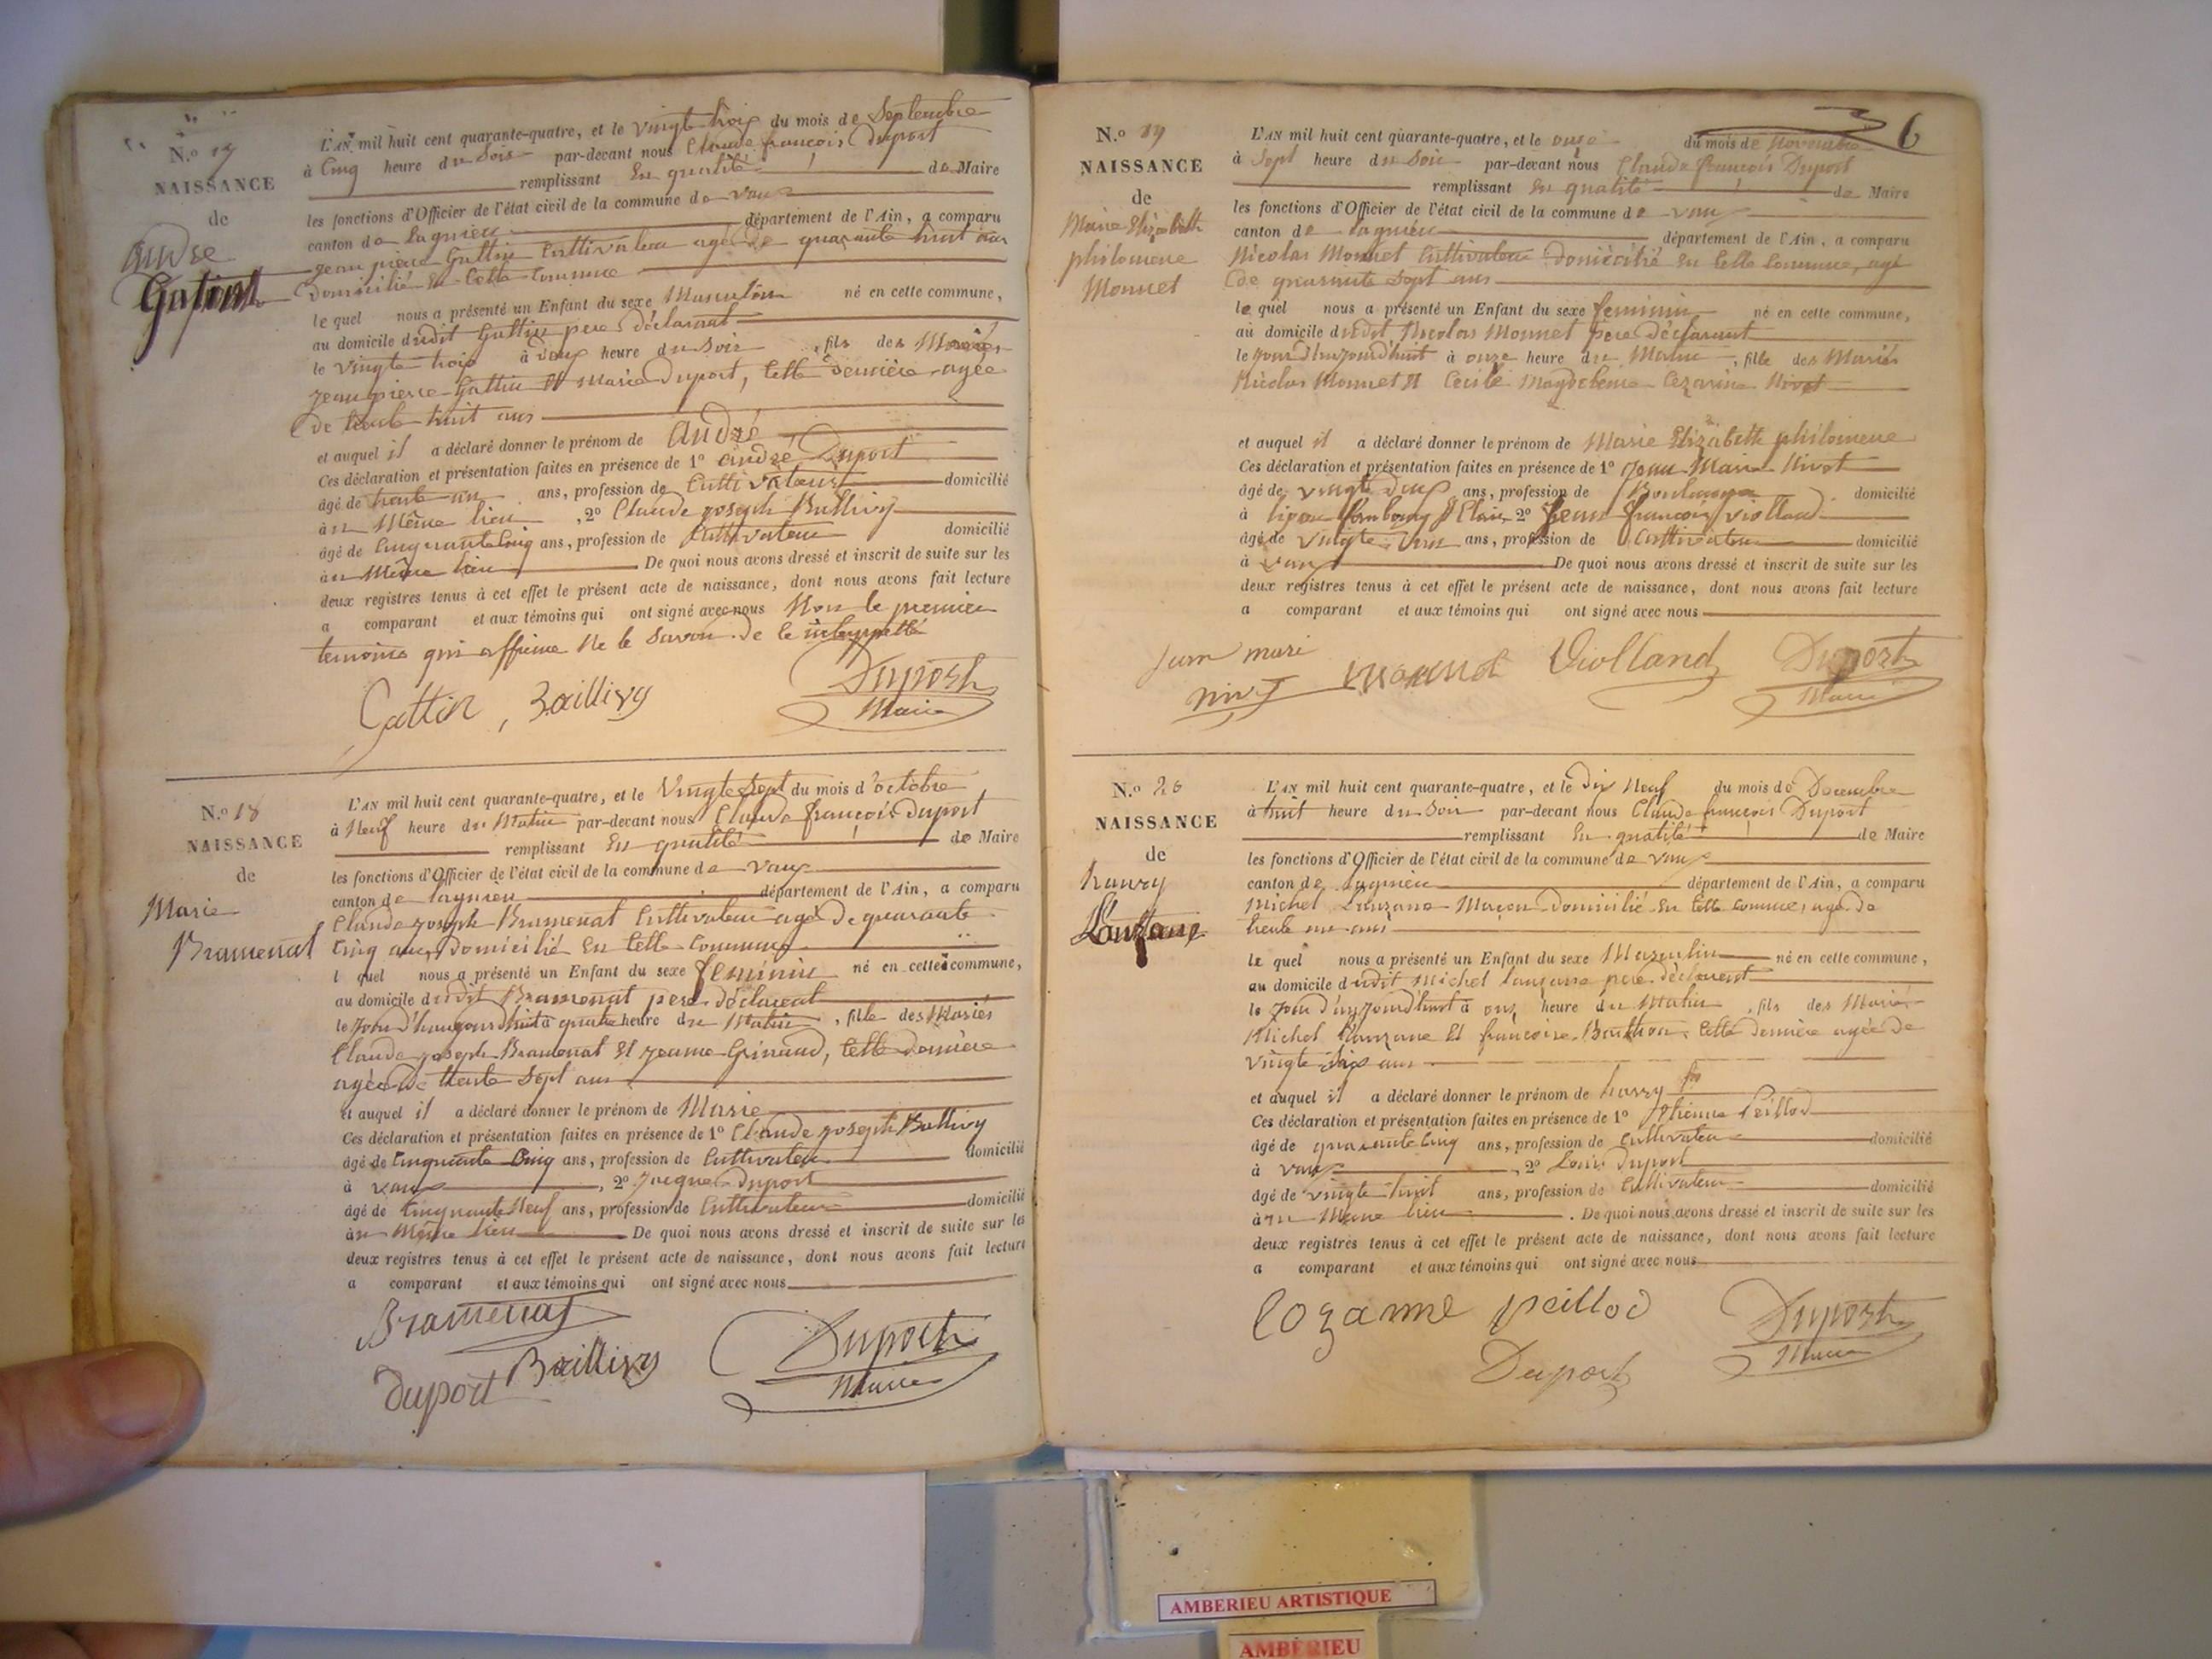 N.o 17
NAISSANCE
de
André
Gattin
L'AN mil huit cent quarante-quatre, et le vingt trois du mois de Septembre
à Cinq heure du Soir par-devant nous Claude françois Duport
remplissant En qualité de Maire
les fonctions d'Officier de l'état civil de la commune de vaux
canton de Lagnieu département de l'Ain, a comparu
jean pierre Gattin Cultivateur agé de quarante huit ans
Domicilié En Cette Commune
le quel nous a présenté un Enfant du sexe Masculin né en cette commune,
au domicile dudit Gattin pere déclarant
le vingt trois à deux heure du Soir, fils des Mariés
jean pierre Gattin Et Marie Duport, Cette dernière agée
de trente huit ans
et auquel il a déclaré donner le prénom de André
Ces déclaration et présentation faites en présence de 1º andré Duport
âgé de trente un ans, profession de Cultivateur domicilié
à u Même lieu, 2º Claude joseph Ballivy
âgé de Cinquante Cinq ans, profession de Cultivateur domicilié
à u Même lieu De quoi nous avons dressé et inscrit de suite sur les
deux registres tenus à cet effet le présent acte de naissance, dont nous avons fait lecture
a comparant et aux témoins qui ont signé avec nous Non le premier
temoins qui affirme Ne le Savoir de ce interpellé
Gattin, Baillivy Duport
Maire
N.o 18
NAISSANCE
de
Marie
Bramenat
L'AN mil huit cent quarante-quatre, et le Vingt Sept du mois d'octobre
à Neuf heure du Matin par-devant nous Claude françois Duport
remplissant En qualité de Maire
les fonctions d'Officier de l'état civil de la commune de Vaux
canton de Lagnieu département de l'Ain, a comparu
Claude joseph Bramenat Cultivateur agé de quarante
Cinq ans, Domicilié En Cette Commune
l quel nous a présenté un Enfant du sexe feminin né en cette commune,
au domicile dudit Bramenat pere déclarant
le jour d'haujourdhuit à quatre heure du Matin, fille des Mariés
Claude joseph Bramenat Et jeanne Grinand, Cette dernière
agée de trente Sept ans
et auquel il a déclaré donner le prénom de Marie
Ces déclaration et présentation faites en présence de 1º Claude joseph Ballivy
âgé de Cinquante Cinq ans, profession de Cultivateur domicilié
à vaux, 2º jacques Duport
âgé de Cinquante Neuf ans, profession de Cultivateur domicilié
à u Même lieu De quoi nous avons dressé et inscrit de suite sur les
deux registres tenus à cet effet le présent acte de naissance, dont nous avons fait lecture
a comparant et aux témoins qui ont signé avec nous
Bramenat
Duport Baillivy Duport
Maire
6
N.o 19
NAISSANCE
de
Marie Elizabeth
philomene
Monnet
L'AN mil huit cent quarante-quatre, et le onze du mois de Novembre
à Sept heure du Soir par-devant nous Claude françois Duport
remplissant En qualité de Maire
les fonctions d'Officier de l'état civil de la commune de vaux
canton de lagnieu département de l'Ain, a comparu
Nicolas Monnet Cultivateur domicilié En Cette Commune, agé
de quarante Sept ans
le quel nous a présenté un Enfant du sexe feminin né en cette commune,
au domicile dudit Nicolas Monnet pere déclarant
le jour d'haujourdhuit à onze heure du Matin, fille des Mariés
Nicolas Monnet Et Cecile Magdeleine Cezarine Nivot
et auquel il a déclaré donner le prénom de Marie Elizabeth philomene
Ces déclaration et présentation faites en présence de 1º Jean Marie Nivot
âgé de vingt deux ans, profession de Boulanger domicilié
à lyon fambourg St Clair, 2º Jean françois Violland
âgé de vingt ans, profession de Cultivateur domicilié
à vaux De quoi nous avons dressé et inscrit de suite sur les
deux registres tenus à cet effet le présent acte de naissance, dont nous avons fait lecture
a comparant et aux témoins qui ont signé avec nous
Monnet Violland Duport
Maire
N.o 20
NAISSANCE
de
haury
Lauzane
L'AN mil huit cent quarante-quatre, et le dix Neuf du mois de Decembre
à huit heure du Soir par-devant nous Claude françois Duport
remplissant En qualité de Maire
les fonctions d'Officier de l'état civil de la commune de vaux
canton de Lagnieu département de l'Ain, a comparu
Michel Lauzane Maçon domicilié En Cette Commune, agé de
trente un ans
le quel nous a présenté un Enfant du sexe Masculin né en cette commune,
au domicile dudit Michel Lauzane pere déclarant
le jour d'aujourdhuit à onze heure du Matin, fils des Mariés
Michel Lauzane Et françoise Cette dernière agée de
vingt Six ans
et auquel il a déclaré donner le prénom de haury
Ces déclaration et présentation faites en présence de 1º Etienne Peillod
âgé de quarante Cinq ans, profession de Cultivateur domicilié
à vaux, 2º Louis Duport
âgé de vingt huit ans, profession de Cultivateur domicilié
à u Même lieu. De quoi nous avons dressé et inscrit de suite sur les
deux registres tenus à cet effet le présent acte de naissance, dont nous avons fait lecture
a comparant et aux témoins qui ont signé avec nous
Lozanne peillod Duport
Duport Maire
AMBERIEU ARTISTIQUE
AMBERIEU